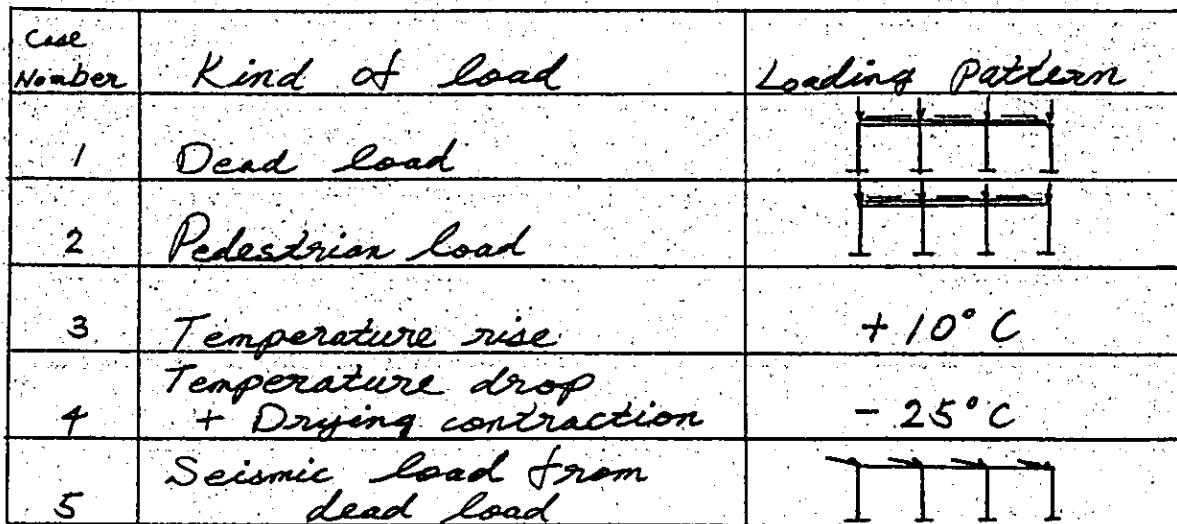 Case
Number Kind of load Loading Pattern
1 Dead load
2 Pedestrian load
3 Temperature rise +10°C
Temperature drop
4 + Drying contraction -25°C
Seismic load from
5 dead load